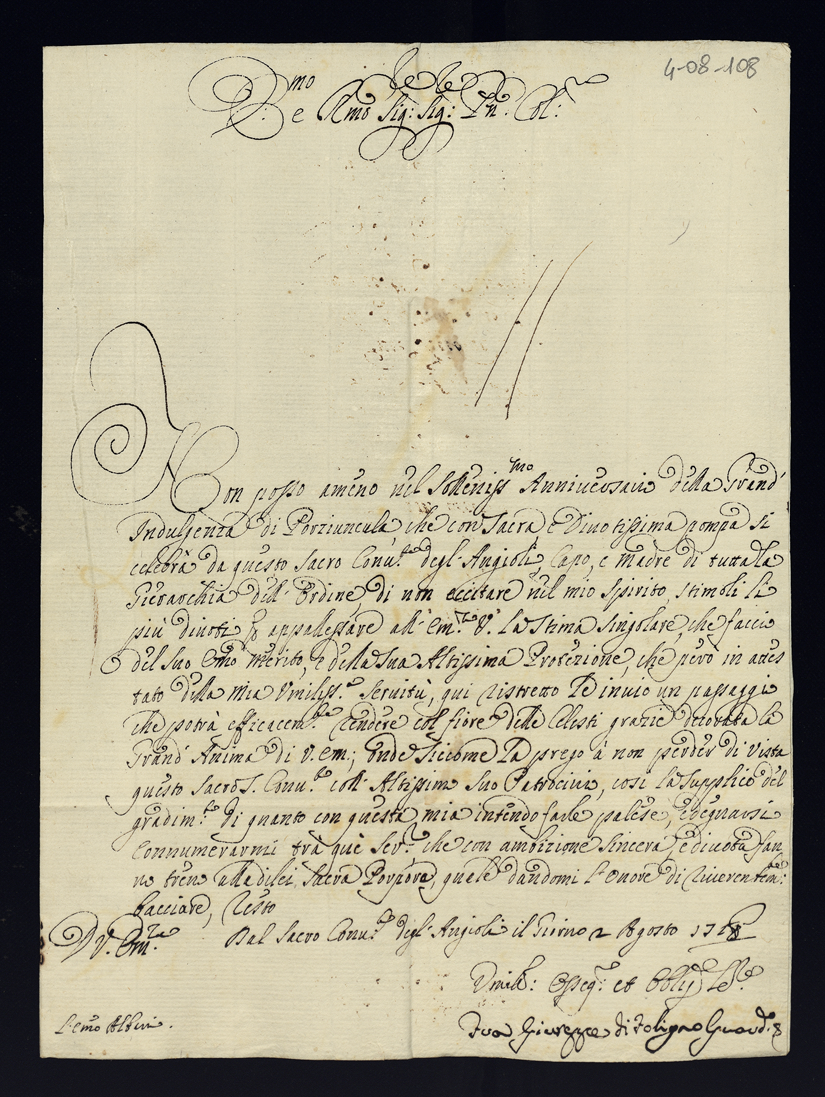 4-08-108
E.mo e Rmo Sig: Sig: Pn. Col.mo
Non posso ameno nel Sollenissmo Anniversario della Grand'
Indulgenza di Porziuncula che con Sacra e Divotissima pompa si
celebra da questo Sacro Conu.to degl'Angioli, Capo, e Madre di tutta la
Gierarchia dell'Ordine, di non eccitare nel mio Spirito, stimoli li
più divoti p appallessare all'Em.za V.a la Stima Singolare, che faccio
del Suo Emo Merito, e della Sua Altissima Protezione, che però in attes
tato della mia Vmiliss.a Servitù, qui ristretto Le invio un passaggio
che potrà efficacem.te rendere col fiore delle Celesti grazie decorata la
Grand'Anima di V. Em.; onde Siccome La prego à non perder di Vista
questo Sacro S. Conu.to coll'Altissimo Suo Patrocinio, così La Supplico del
gradim.to di quanto con questa mia intendo farle palese, e degnarsi
Connumerarmi trà què Ser.ri che con ambizione Sincera, e divota fan
no treno alla di lei Sacra Porpora, quale dandomi l'Onore di riverentem:
bacciare, resto
D V. Em.za Dal Sacro Conu.to degl'Angioli il Giorno 2 Agosto
Vmill: Osseq. et Obblig
L'emo Albani.
Fra Giuseppe di Foligno Guard.